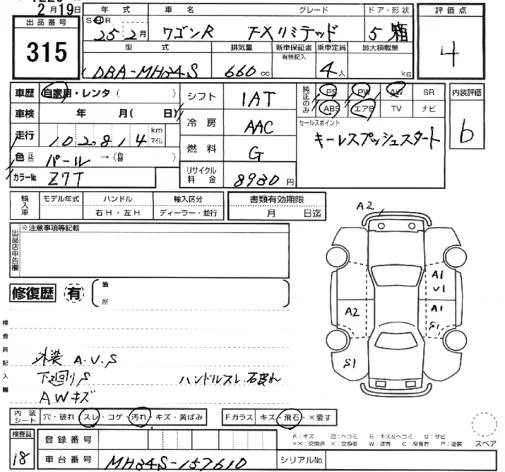 2月19日
出品番号 315
年式 車名 グレード ドア・形状 評価点
25 2月 ワゴンR FXリミテッド 5 箱 4
型式 排気量 新車保証書 有無記入 乗車定員 最大積載量
DBA-MH34S 660cc 4人 kg
車歴 自家用・レンタ( ) シフト IAT 純正のみ PS PW AW SR 内装評価
車検 年 月( 日) ABS エアB TV ナビ b
走行 102814 km マイル 冷房 AAC セールスポイント
色 パール→( ) 燃料 G キーレスプッシュスタート
カラーNo Z7T リサイクル料金 8980円
輸入車 モデル年式 ハンドル 輸入区分 書類有効期限
右H・左H ディーラー・並行 月 日迄
出品店申告欄 ※注意事項等記載
A2
修復歴 有 箇所
A1
U1
A2 A1
S1
S1
検査員記入欄
外装 A.U.S
下廻りS ハンドルスレ
AWキズ
内装シート 穴・破れ・スレ・コゲ・汚れ・キズ・黄ばみ Fガラス キズ・飛石・×要す
A:キズ
スペア
検査員 18 登録番号
車台番号 MH34S-157610 シリアルNo.